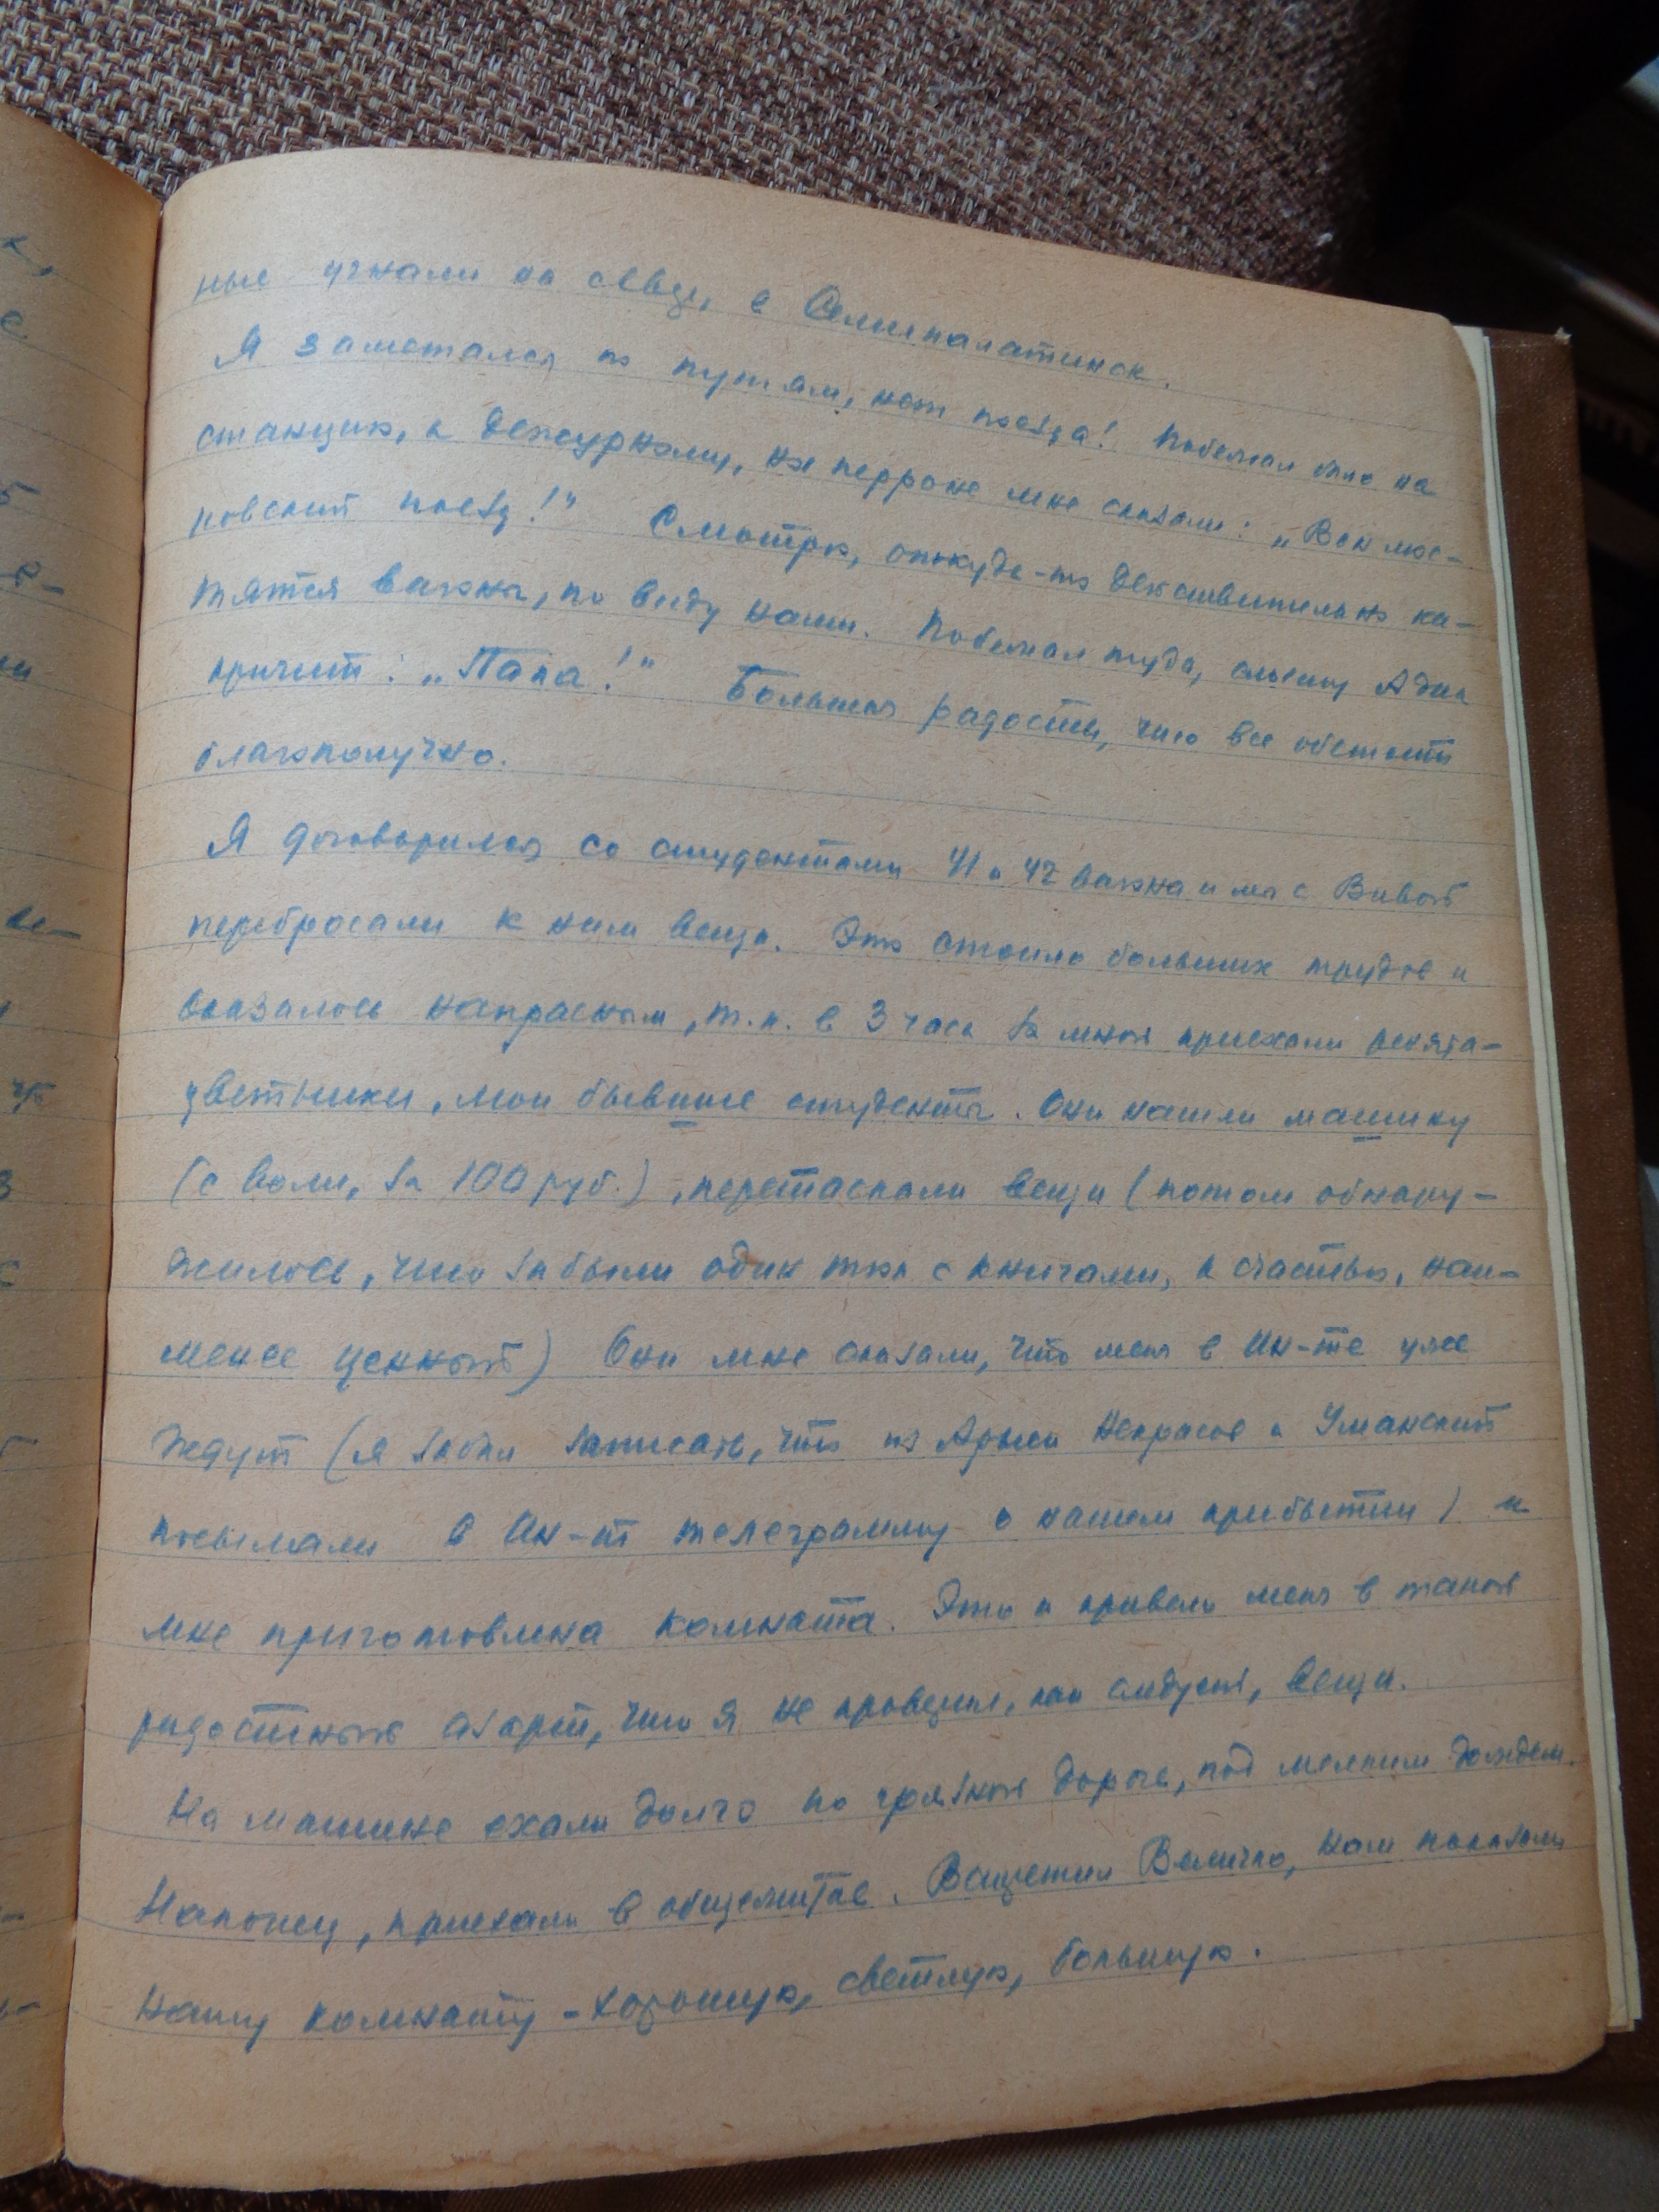 ные угнали на север, в Семипалатинск.
Я заметался по путям, нет поезда! Побежал было на
станцию, к дежурному, на перроне мне сказали: „Вон мос-
ковский поезд!" Смотрю, откуда-то действительно ка-
тятся вагоны, по виду наши. Побежал туда, слышу Адик
кричит: „Папа!" Большая радость, что все обстоит
благополучно.
Я договорился со студентами 41 и 42 вагона и мы с Вивой
перебросали к ним вещи. Это стоило больших трудов и
оказалось напрасным, т.к. в 3 часа за мной приехали ребята-
цветники, мои бывшие студенты. Они нашли машину
(с воли, за 100 руб.), перетаскали вещи (потом обнару-
жилось, что забыли один тюк с книгами, к счастью, наи-
менее ценный) Они мне сказали, что меня в Ин-те уже
ждут (я забыл записать, что из Арыси Некрасов и Уманский
посылали в Ин-т телеграмму о нашем прибытии) и
мне приготовлена комната. Это и привело меня в такой
радостный азарт, что я не проверил, как следует, вещи.
На машине ехали долго по грязной дороге, под мелким дождем.
Наконец, приехали в общежитие. Величко, нам показали
нашу комнату - хорошую, светлую, большую.